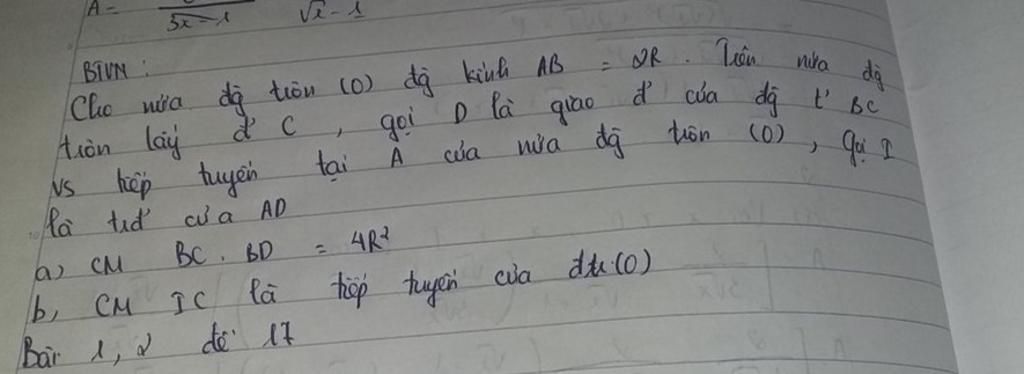 A =
5x - 1 √x - 1
BTVN :
Cho nửa đg tròn (O) đg kính AB = 2R . Trên nửa đg
tròn lấy đ' C , gọi D là giao đ' của đg t' BC
vs tiếp tuyến tại A của nửa đg tròn (O) , gọi I
là tđ' của AD
a) CM BC . BD = 4R²
b, CM IC là tiếp tuyến của đtr (O)
Bài 1, 2 đề 17